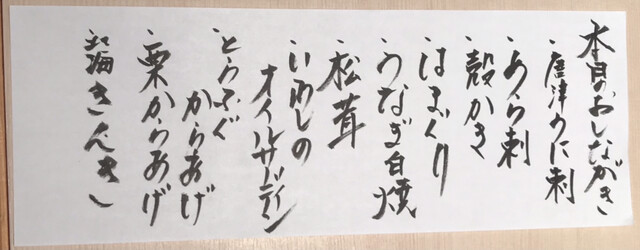 本日のおしながき
・唐津うに刺
・あら刺
・殻かき
・はまぐり
・うなぎ白焼
・松茸
・いわしの
オイルサーディン
・とらふぐ
からあげ
・栗からあげ
・きんき